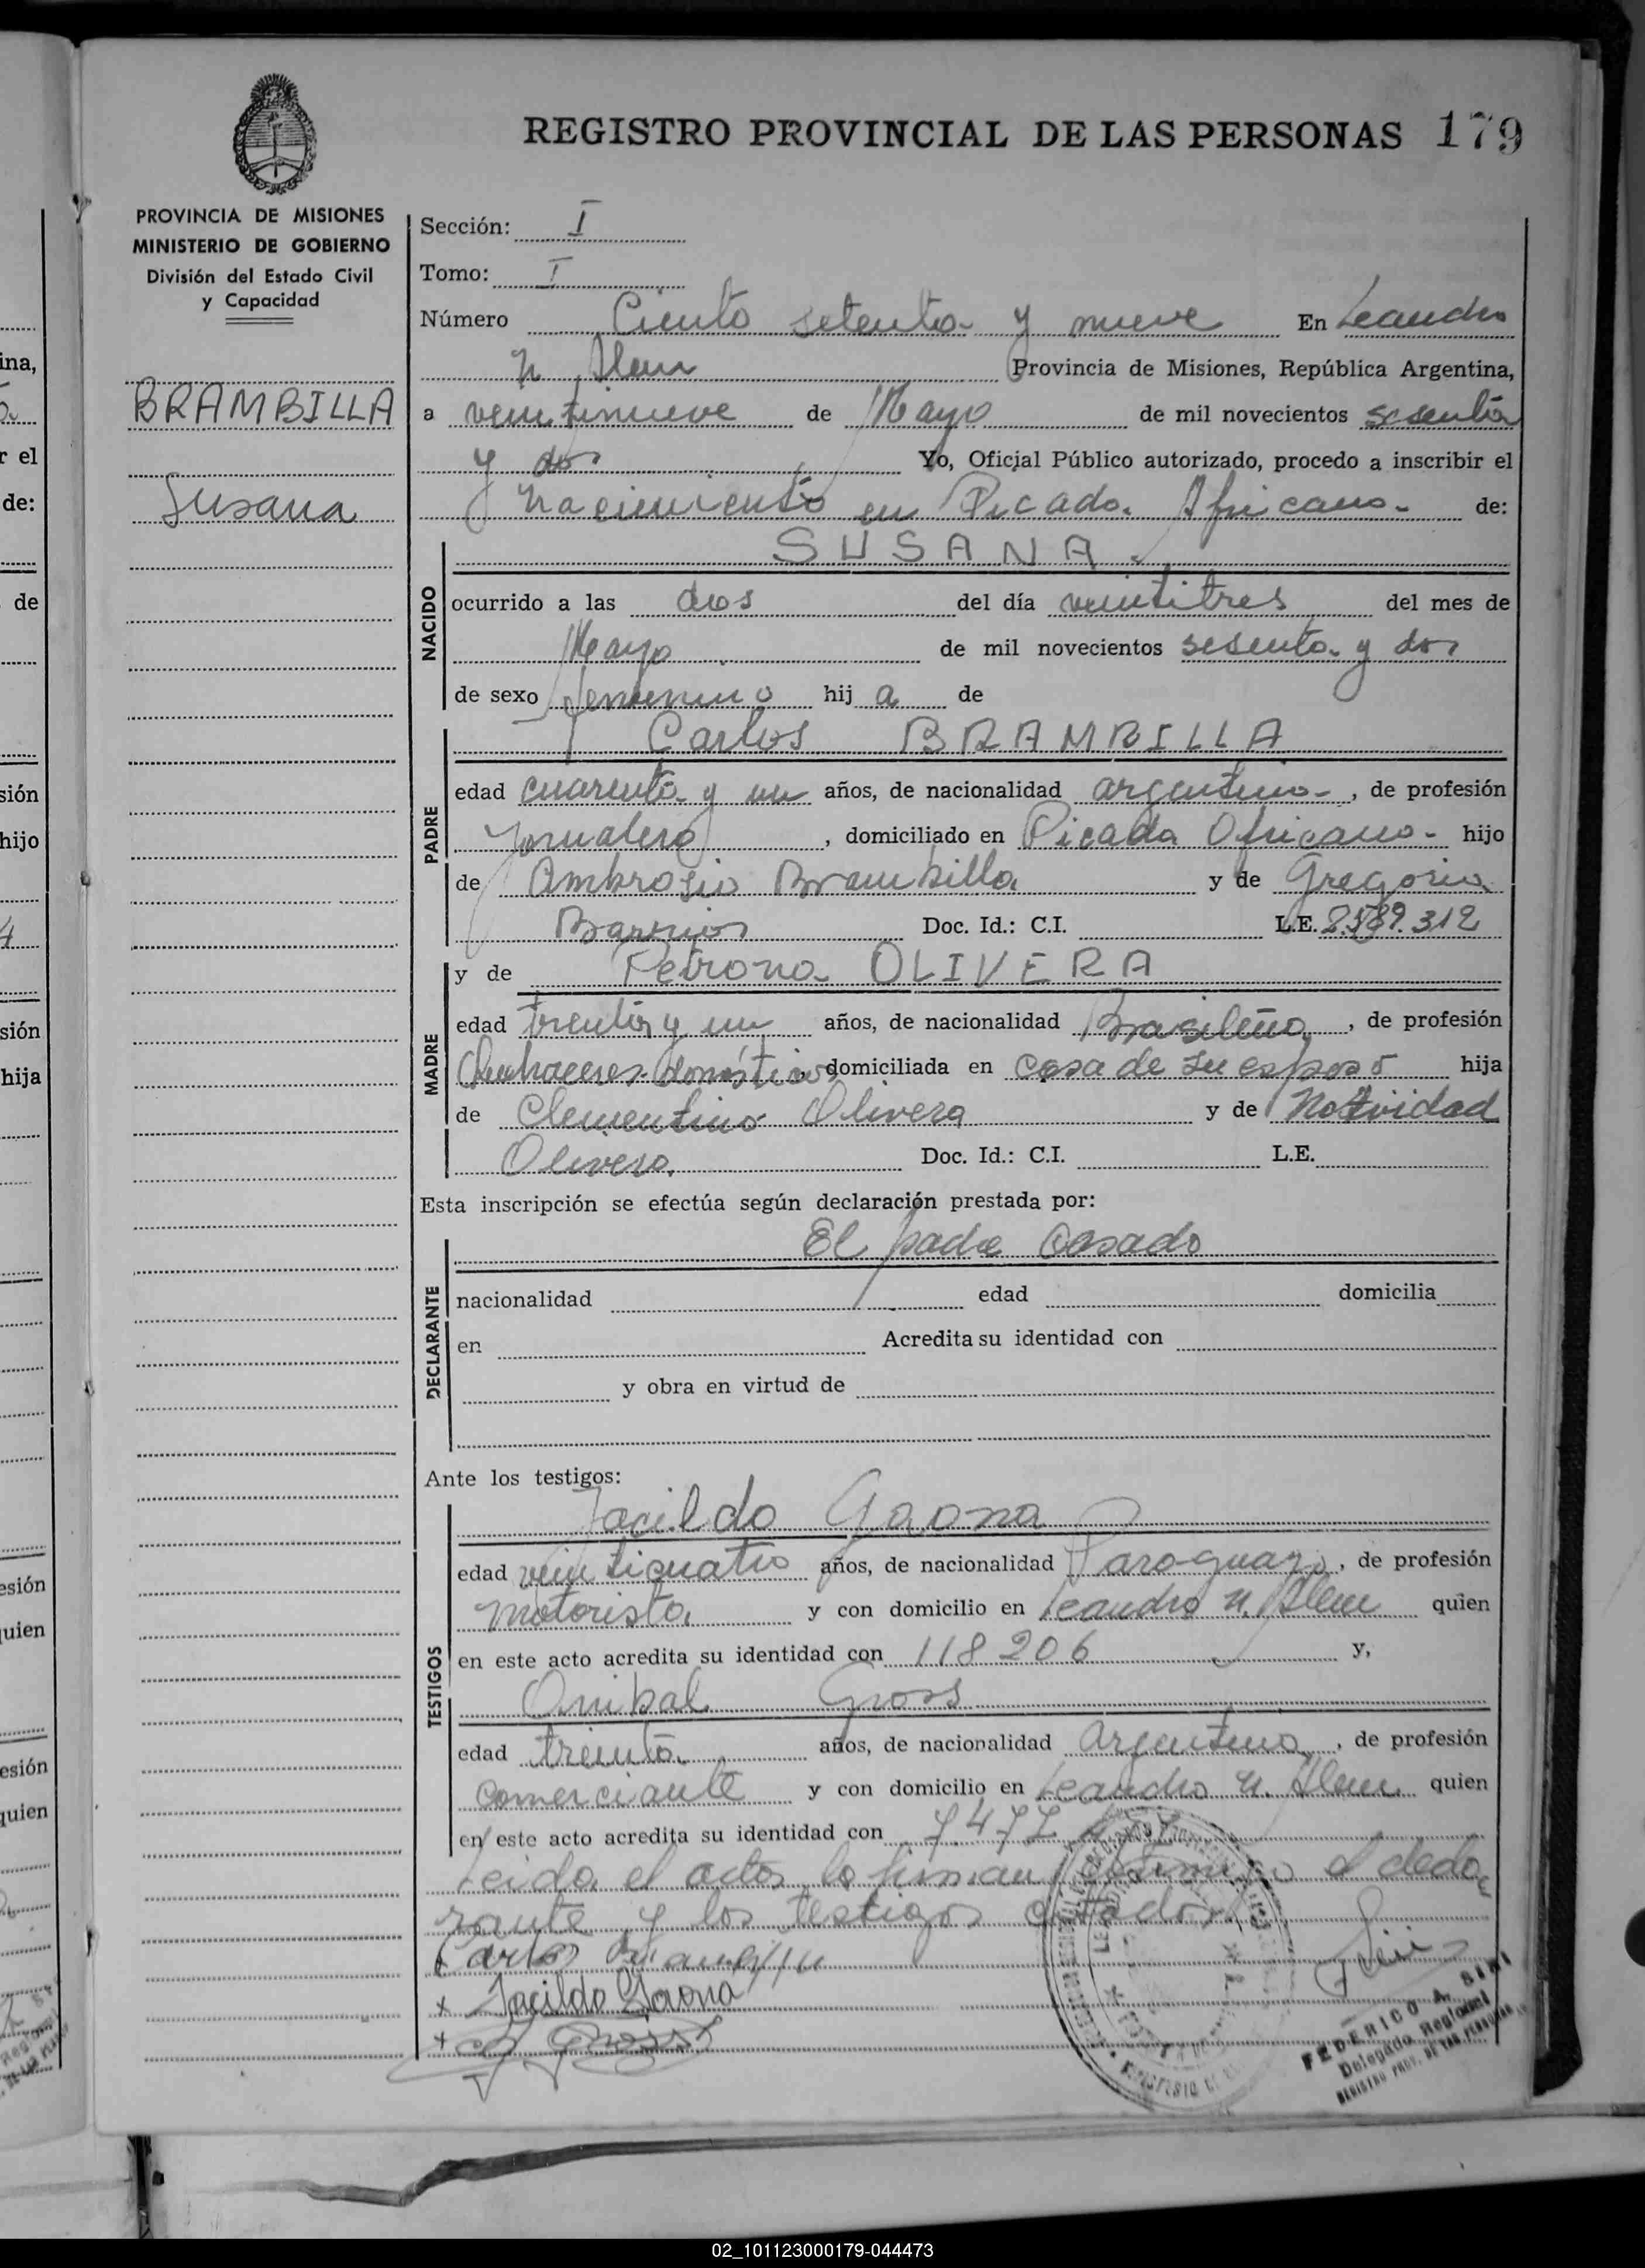 REGISTRO PROVINCIAL DE LAS PERSONAS 179
PROVINCIA DE MISIONES
MINISTERIO DE GOBIERNO
División del Estado Civil
y Capacidad
BRAMBILLA
Susana
Sección: I
Tomo: I
Número Ciento setenta y nueve En Leandro
N Alem Provincia de Misiones, República Argentina,
a veintinueve de Mayo de mil novecientos sesenta
y dos Yo, Oficial Público autorizado, procedo a inscribir el
nacimiento en Picada Africano de:
NACIDO
SUSANA
ocurrido a las dos del día veintitres del mes de
Mayo de mil novecientos sesenta y dos
de sexo femenino hij a de
PADRE
Carlos BRAMBILLA
edad cuarenta y un años, de nacionalidad argentino, de profesión
Jornalero, domiciliado en Picada Africano hijo
de Ambrosio Brambilla y de Gregoria
Barrios Doc. Id.: C.I. L.E. 2.589.312
MADRE
y de Petrona OLIVERA
edad treinta y un años, de nacionalidad Brasileña, de profesión
Quehaceres domésticos, domiciliada en casa de su esposo hija
de Clementino Olivera y de Natividad
Olivera Doc. Id.: C.I. L.E.
Esta inscripción se efectúa según declaración prestada por:
DECLARANTE
El padre casado
nacionalidad edad domicilia
en Acredita su identidad con
y obra en virtud de
Ante los testigos:
TESTIGOS
Jacildo Gaona
edad veinticuatro años, de nacionalidad Paraguayo, de profesión
motorista y con domicilio en Leandro N. Alem quien
en este acto acredita su identidad con 118206 y,
Anibal Gross
edad treinta años, de nacionalidad Argentino, de profesión
comerciante y con domicilio en Leandro N. Alem quien
en este acto acredita su identidad con 7.477
Leida el acta, lo firman conmigo el decla
rante y los testigos citados
Carlos Brambilla
x Jacildo Gaona
x A Gross
FEDERICO A. SINI
Delegado Regional
REGISTRO PROV. DE LAS PERSONAS
02_101123000179-044473